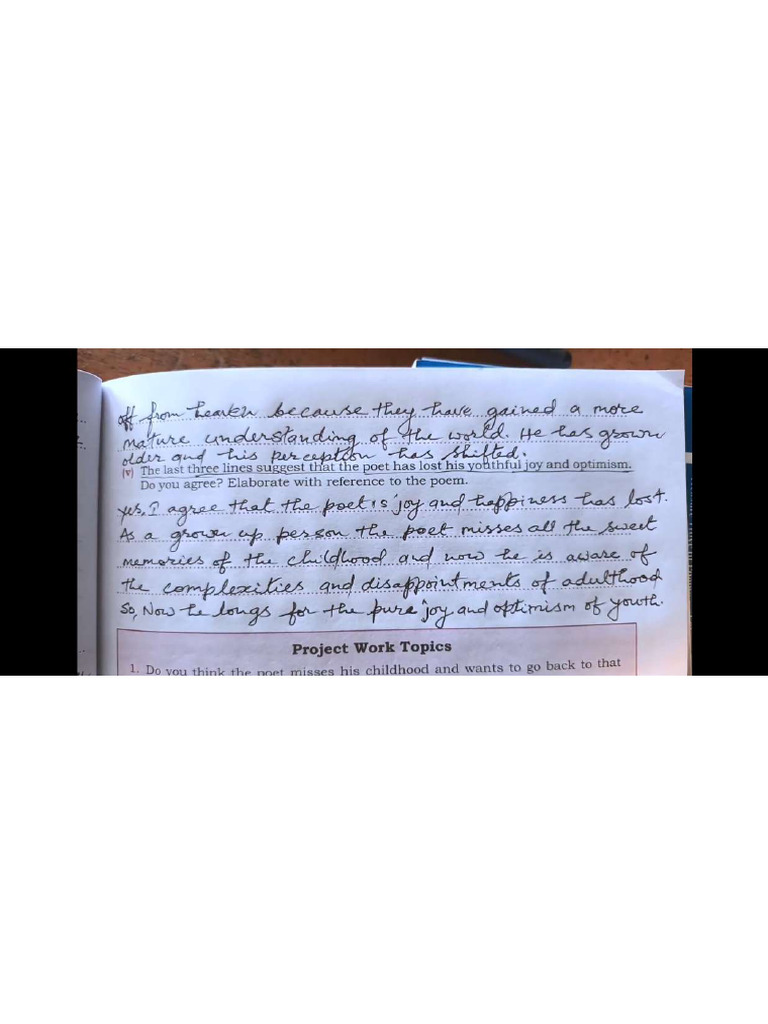 off from heaven because they have gained a more
mature understanding of the world. He has grown
older and his perception has shifted.
(v) The last three lines suggest that the poet has lost his youthful joy and optimism.
Do you agree? Elaborate with reference to the poem.
Yes, I agree that the poet is' joy and happiness has lost.
As a grown up person the poet misses all the sweet
memories of the childhood and now he is aware of
the complexities and disappointments of adulthood
So, Now he longs for the pure joy and optimism of youth.
Project Work Topics
1. Do you think the poet misses his childhood and wants to go back to that